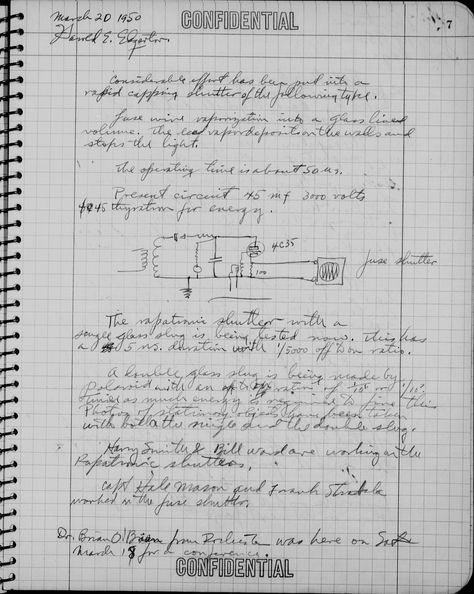 March 20 1950
CONFIDENTIAL
7
Harold E. Edgerton
Considerable effort has been put into a
rapid capping shutter of the following type.
Fuse wire vaporization into a glass lined
volume. The vapor deposits on the walls and
stops the light.
The operating time is about 50 us.
Present circuit 45 mf 3000 volts
thyratron for energy.
4C35
100
fuse shutter
The rapatronic shutter with a
single glass slug is being tested now. This has
a 5 us. duration with 1/5000 off to on ratio.
A double glass slug is being made by
Polaroid with an ratio of
times as much energy is required to
Photos of stationary objects have been taken
with both the single and the double slug.
Harry Smith & Bill Ward are working on the
Rapatronic shutters.
Capt Hale Mason and Frank
worked on the fuse shutter.
Dr. Brian O'Brien from Rochester was here on Sat
March 18 for a conference.
CONFIDENTIAL